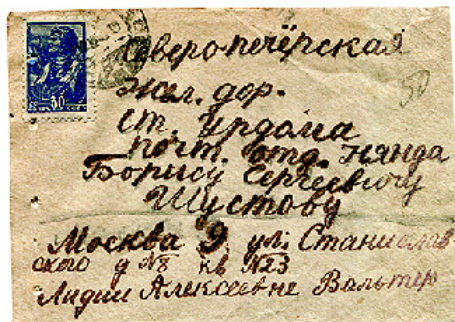 Северо-печёрская
жел. дор.
ст. Урдома
почт. отд. Нянда
Борису Сергеевичу
Шустову
Москва 9 ул. Станислав
ского д №8 кв №23
Лидии Алексеевне Вальтер
50
30